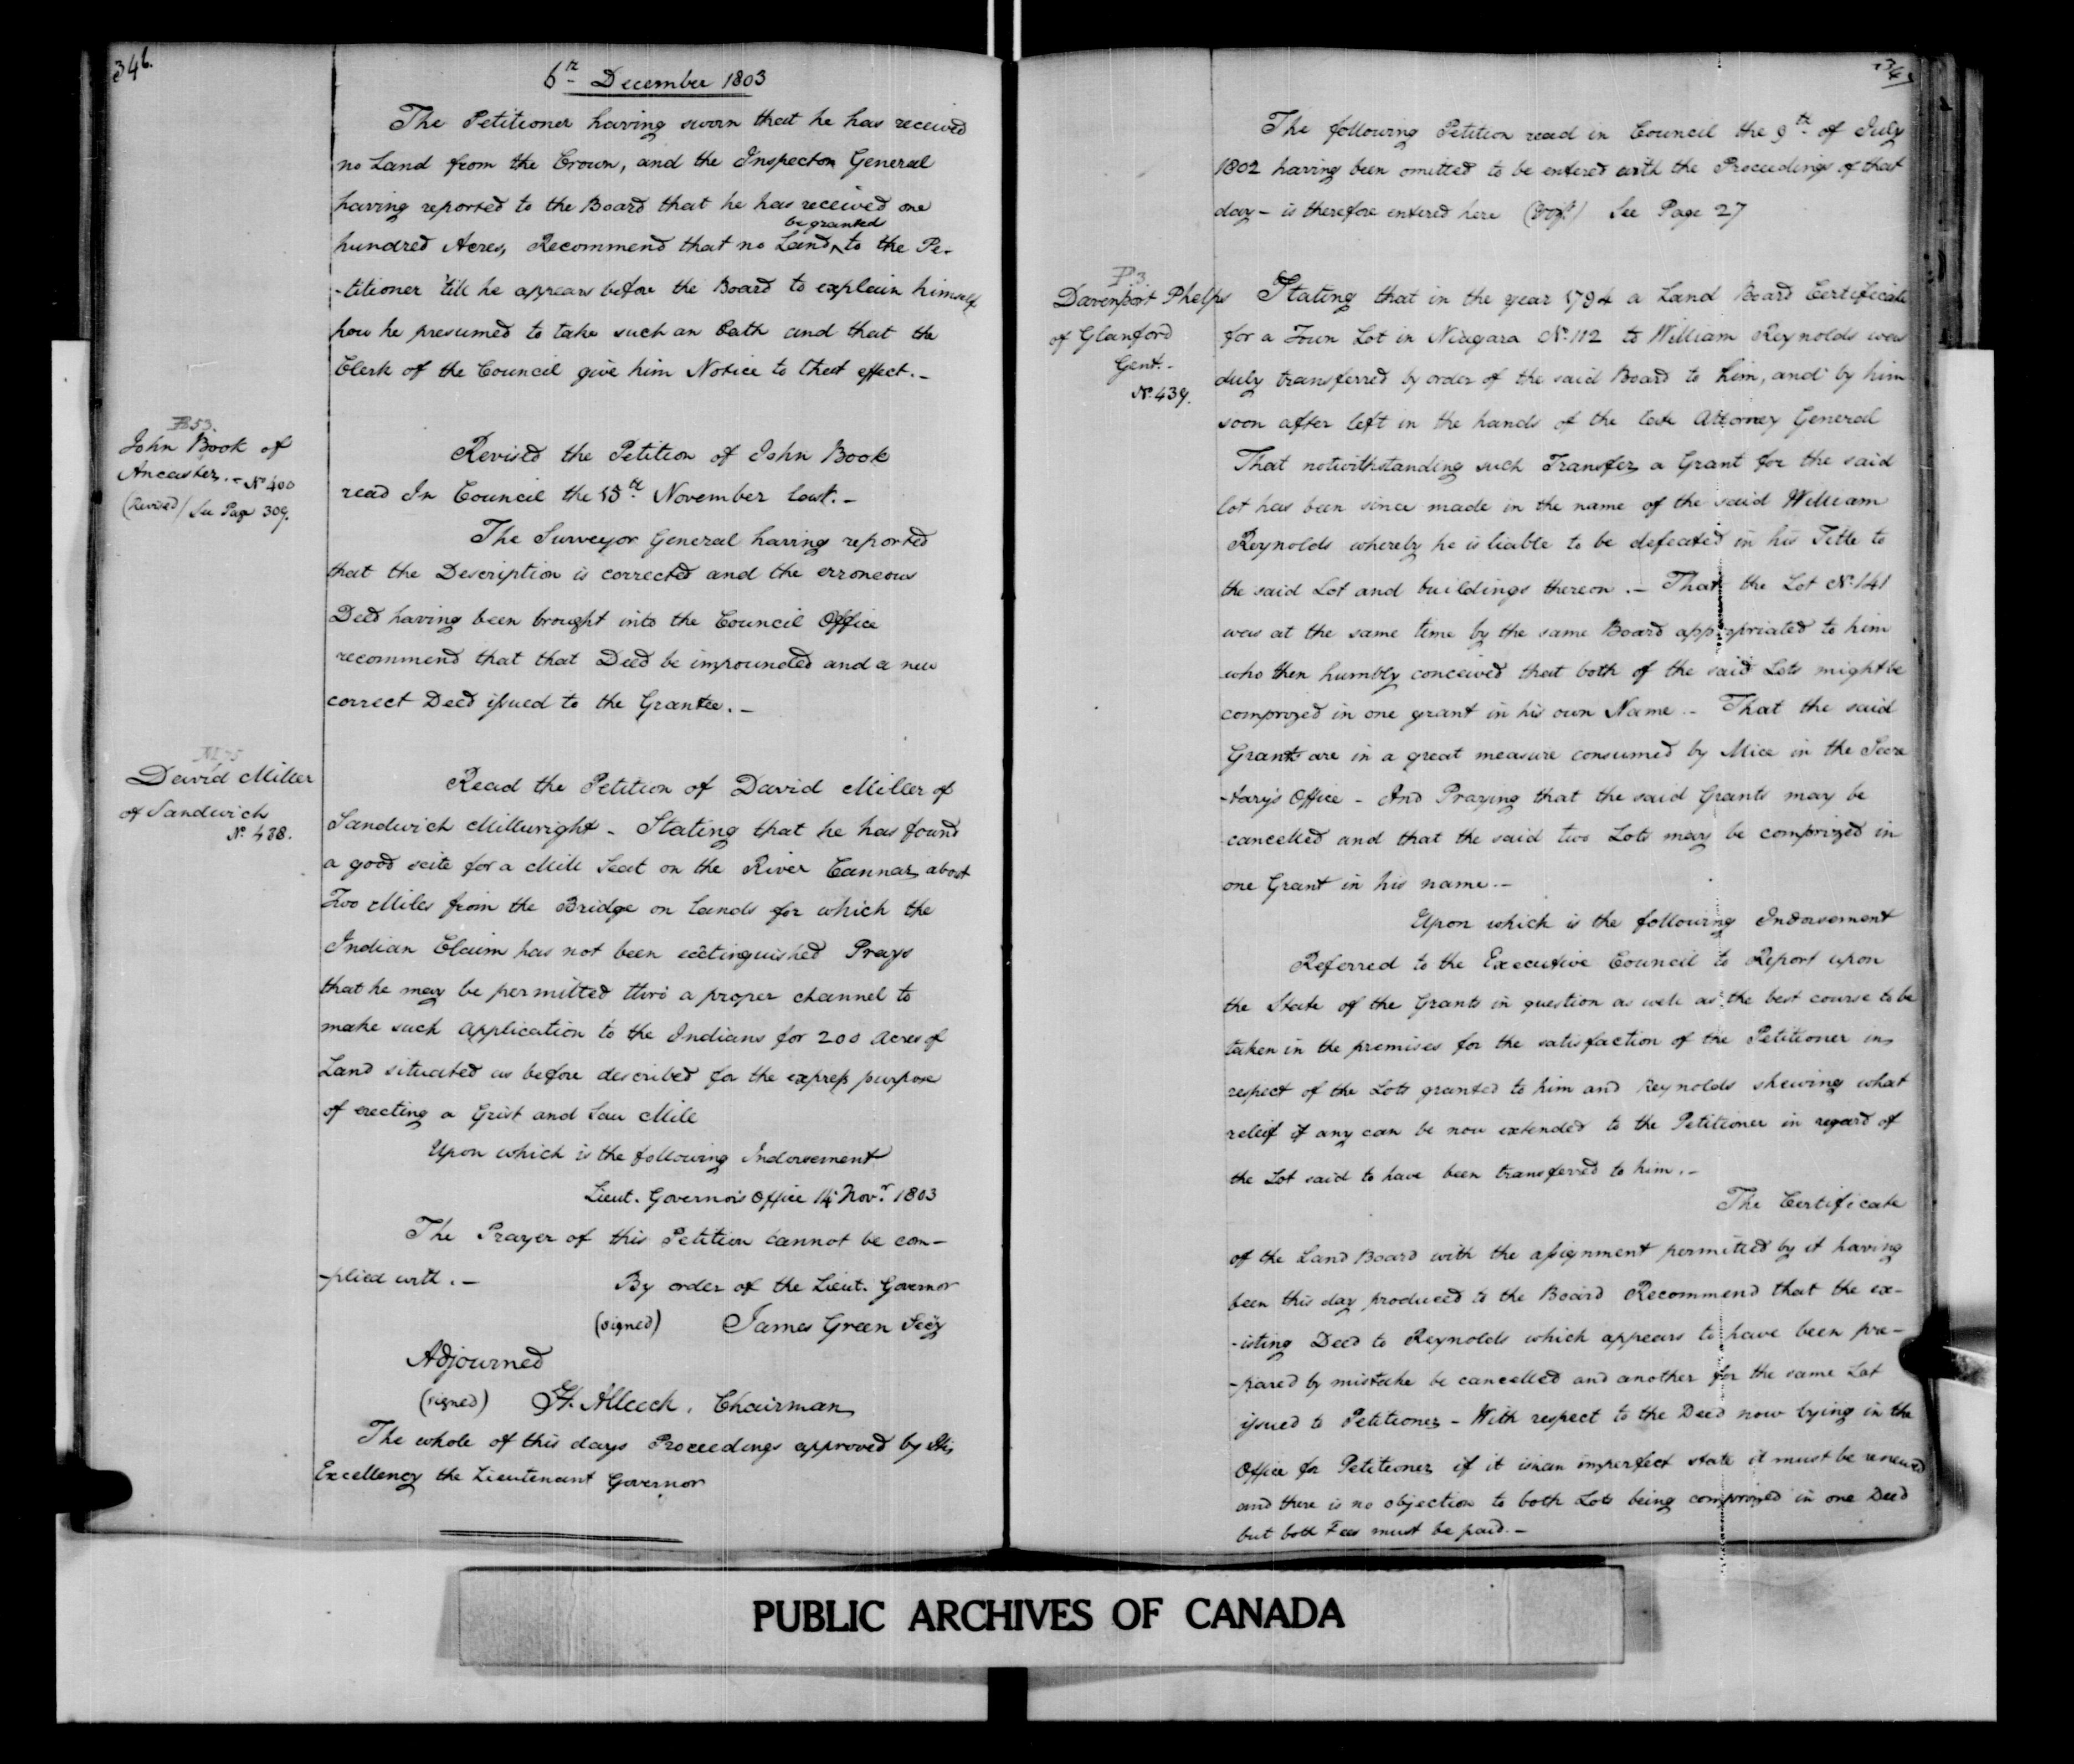 346.
6th December 1803
The Petitioner having sworn that he has received
no Land from the Crown, and the Inspector General
having reported to the Board that he has received one
be granted
hundred Acres, Recommend that no Land ^ to the Pe-
-titioner 'till he appears before the Board to explain himself
how he presumed to take such an Oath and that the
Clerk of the Council give him Notice to that effect. -
B53.
John Book of
Ancaster. - No 400
(Revised) See Page 309.
Revised the Petition of John Book
read In Council the 15th November last. -
The Surveyor General having reported
that the Description is corrected and the erroneous
Deed having been brought into the Council Office
recommend that that Deed be impounded and a new
correct Deed issued to the Grantee. -
David Miller
of Sandwich
No. 438.
Read the Petition of David Miller of
Sandwich Millwright - Stating that he has found
a good scite for a Mill Seat on the River Cannar, about
Two Miles from the Bridge on Lands for which the
Indian Claim has not been extinguished Prays
that he may be permitted thro' a proper channel to
make such application to the Indians for 200 Acres of
Land situated as before described for the express purpose
of erecting a Grist and Saw Mill
Upon which is the following Indorsement
Lieut. Governor's Office 14 Novr. 1803
The Prayer of this Petition cannot be com-
-plied with. -
By order of the Lieut. Governor
(signed) James Green Secy
Adjourned
(signed) H. Allcock, Chairman
The whole of this days Proceedings approved by His
Excellency the Lieutenant Governor
The following Petition read in Council the 9th of July
1802 having been omitted to be entered with the Proceedings of that
day - is therefore entered here See Page 27
P3.
Davenport Phelps
of Glanford
Gent. -
No. 439.
Stating that in the year 1794 a Land Board Certificate
for a Town Lot in Niagara No. 112 to William Reynolds was
duly transferred by order of the said Board to him, and by him
soon after left in the hands of the late Attorney General
That notwithstanding such Transfer, a Grant for the said
lot has been since made in the name of the said William
Reynolds whereby he is liable to be defeated in his Title to
the said Lot and buildings thereon. - That the Lot No. 141
was at the same time by the same Board appropriated to him
who then humbly conceived that both of the said Lots might be
comprozed in one grant in his own Name - That the said
Grants are in a great measure consumed by Mice in the Secre
-tary's Office - And Praying that the said Grants may be
cancelled and that the said two Lots may be comprized in
one Grant in his name. -
Upon which is the following Indorsement
Referred to the Executive Council to Report upon
the State of the Grants in question as well as the best course to be
taken in the premises for the satisfaction of the Petitioner in
respect of the Lots granted to him and Reynolds shewing what
releif if any can be now extended to the Petitioner in regard of
the Lot said to have been transferred to him. -
The Certificate
of the Land Board with the assignment permitted by it having
been this day produced to the Board Recommend that the ex-
-isting Deed to Reynolds which appears to have been pre-
-pared by mistake be cancelled and another for the same Lot
issued to Petitioner - With respect to the Deed now lying in the
Office for Petitioner, if it is in an imperfect state it must be renewed
and there is no objection to both Lots being comprozed in one Deed
but both Fees must be paid. -
PUBLIC ARCHIVES OF CANADA